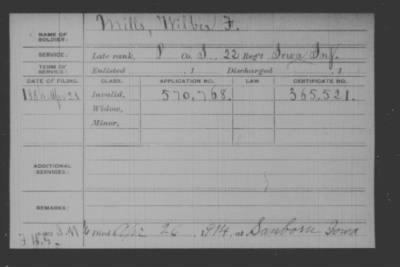 NAME OF SOLDIER: Mills, Wilber F.
SERVICE: Late rank, P Co. I, 22 Reg't Iowa Inf.
TERM OF SERVICE: Enlisted , 1 Discharged , 1
DATE OF FILING. CLASS. APPLICATION NO. LAW CERTIFICATE NO.
Invalid, 570,768. 365,521.
Widow,
Minor,
ADDITIONAL SERVICES:
REMARKS:
Died Apr 26, 1914, at Sanborn Iowa